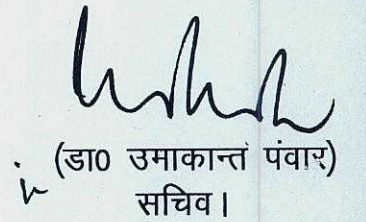 (डा0 उमाकान्त पंवार)
सचिव।